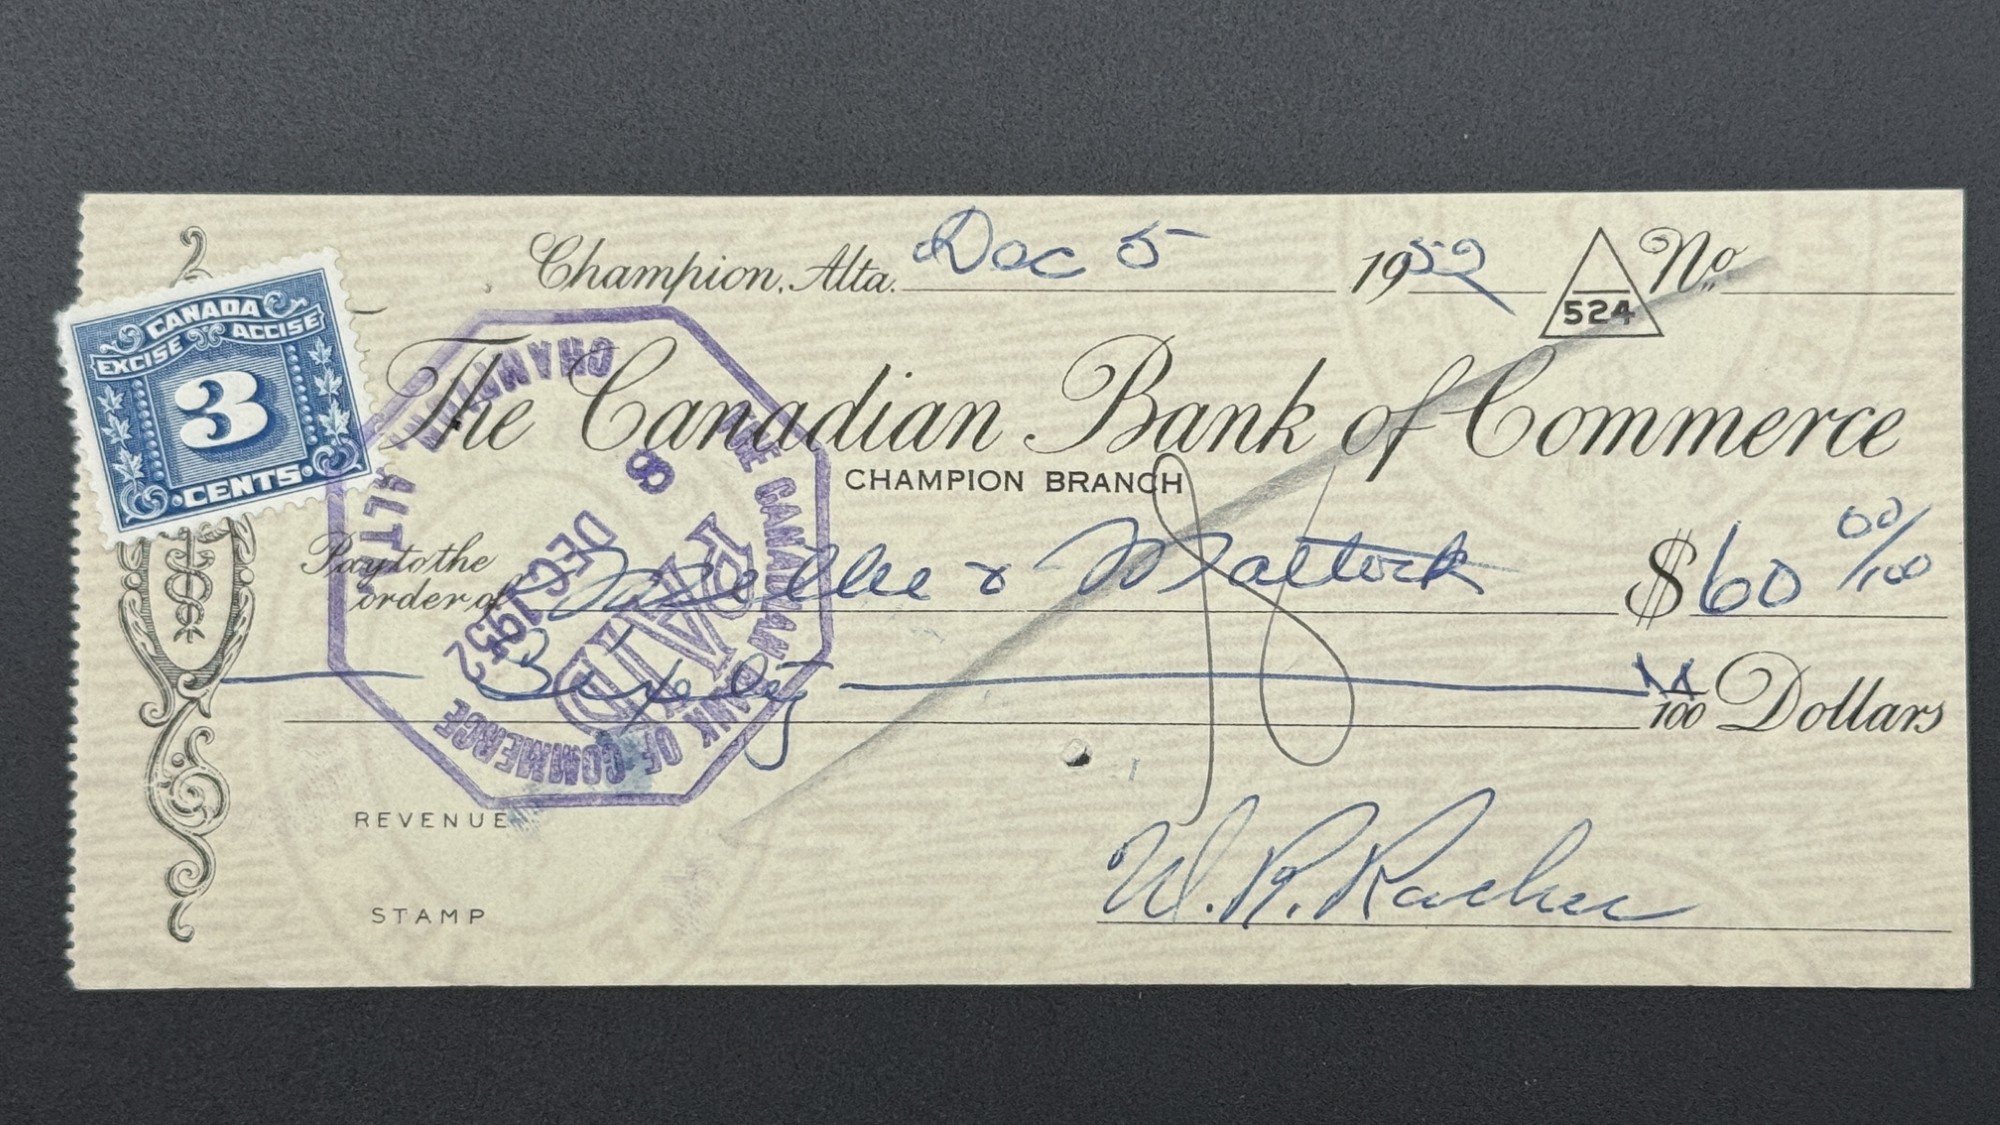 Champion, Alta. Dec 5 1952 524 No.
CANADA
EXCISE ACCISE
3
CENTS
The Canadian Bank of Commerce
CHAMPION BRANCH
Pay to the
order of Mellie & Mattock $60 00/100
Sixty XX/100 Dollars
THE CANADIAN BANK OF COMMERCE
CHAMPION ALTA
8
DEC 1952
PAID
REVENUE
STAMP
W. R. Racher